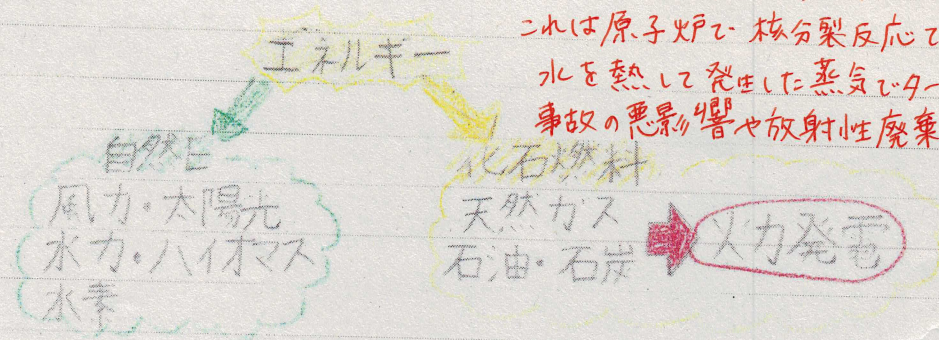 エネルギー
これは原子炉で核分裂反応で
水を熱して発生した蒸気でター
事故の悪影響や放射性廃棄
自然E
風力・太陽光
水力・バイオマス
水素
化石燃料
天然ガス
石油・石炭
火力発電